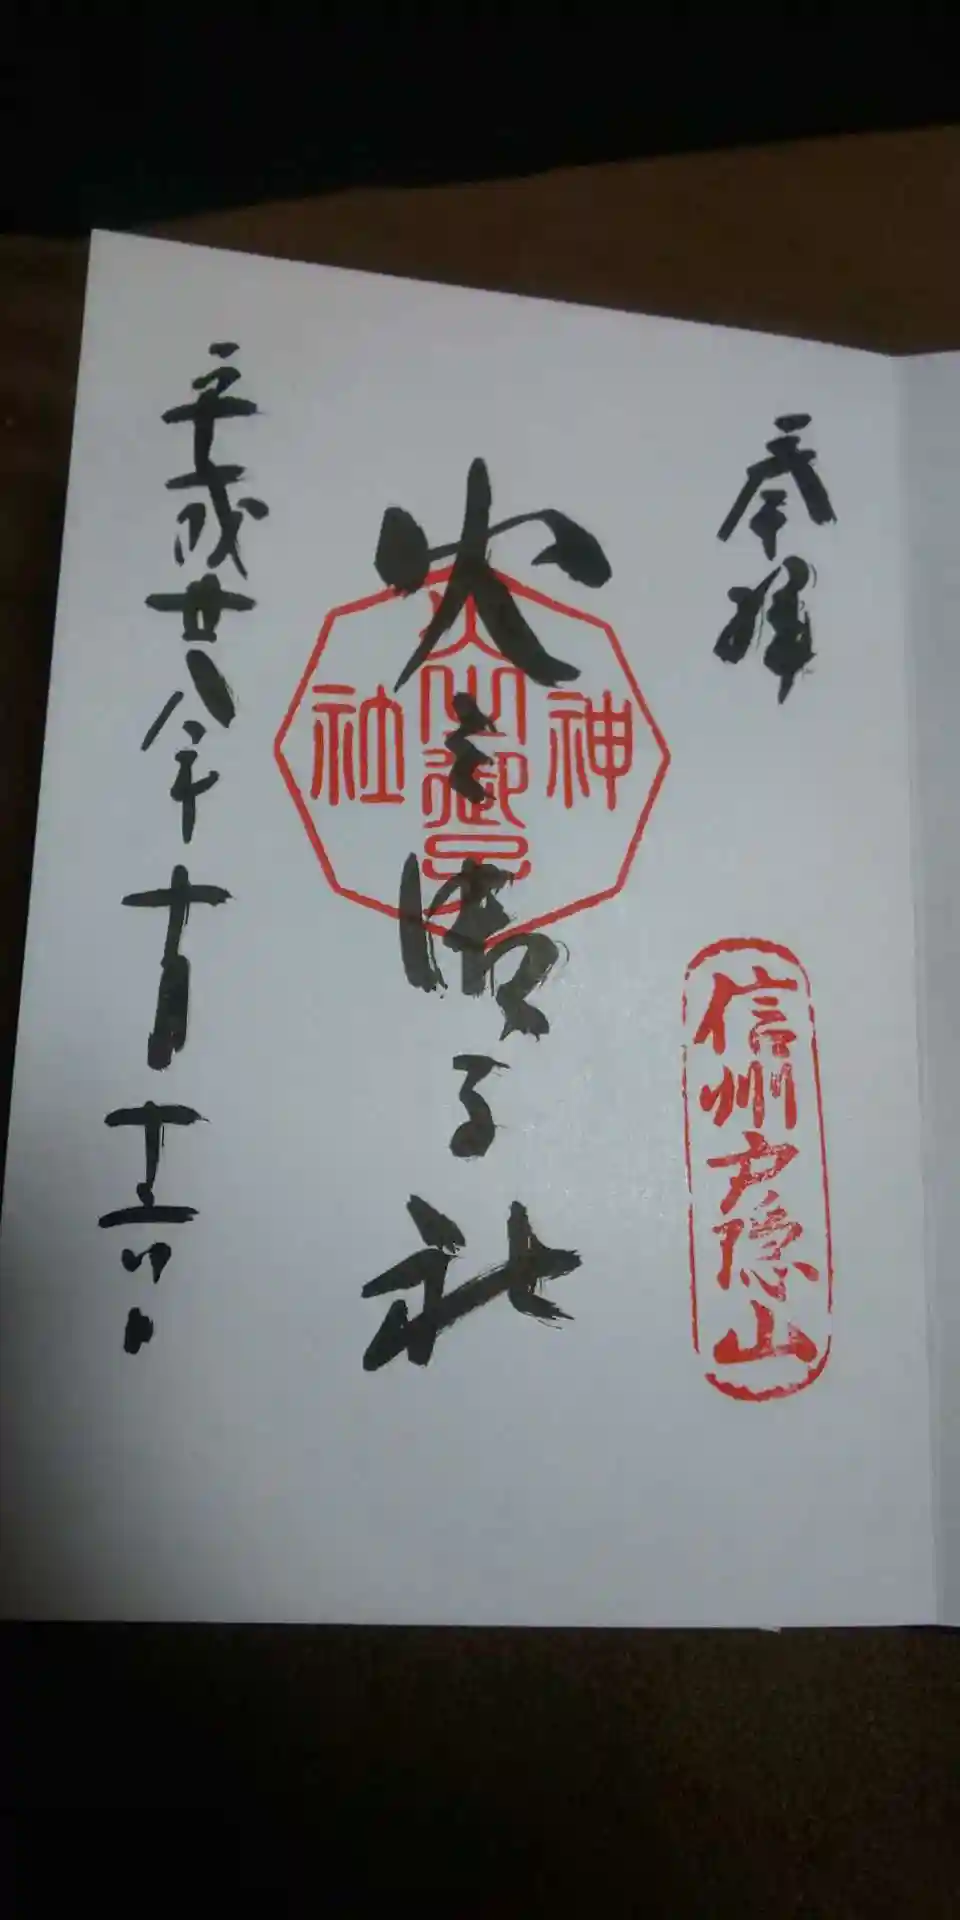 奉拝
信州戸隠山
火之御子社
神
火之御子
社
平成廿八年十月